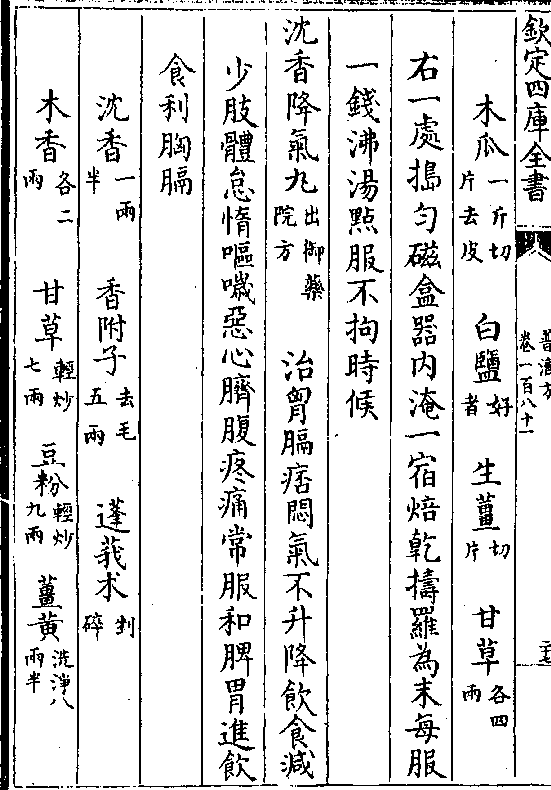 欽定四庫全書
普濟方
卷一百八十一
二十七
木瓜一斤切片去皮 白鹽好者 生薑切片 甘草各四兩
右一處搗勻磁盒器內淹一宿焙乾擣羅為末每服
一錢沸湯㸃服不拘時候
沈香降氣丸出御藥院方 治胷膈痞悶氣不升降飲食減
少肢體怠惰嘔噦惡心臍腹疼痛常服和脾胃進飲
食利胸膈
沈香一兩半 香附子去毛五兩 蓬莪朮剉碎
木香各二兩 甘草輕炒七兩 豆粉輕炒九兩 薑黃洗淨八兩半